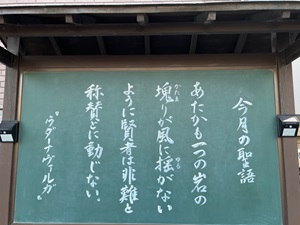 今月の聖語
あたかも一つの岩の
塊りが風に揺がない
かたま
ゆる
ように賢者は非難と
称賛とに動じない。
“ウダーナヴァルガ”